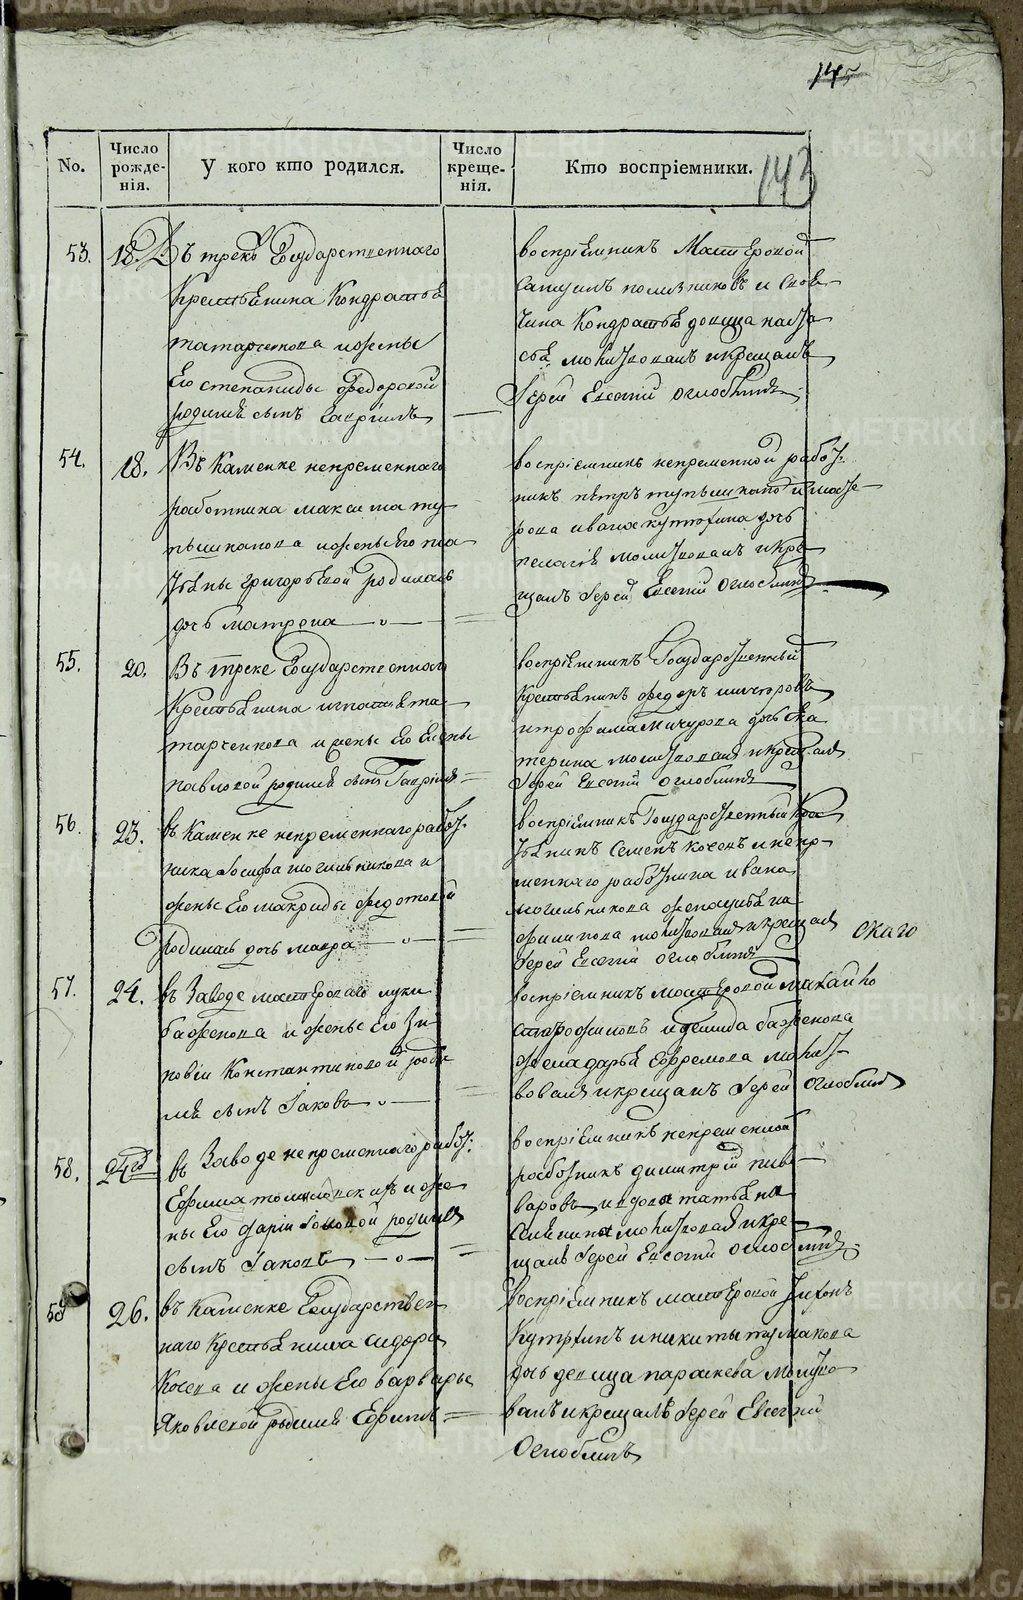 145
No.
Число рожде-нія.
У кого кто родился.
Число креще-нія.
Кто воспріемники.
143
53.
18.
Въ трекѣ Государственнаго
Крестьянина Кондратья
татарченкова и жены
Его степаниды федоровой
родился сынъ Гавріилъ
воспріемникъ Мастеровой
Кондратья довица наста
молитвовалъ и крещалъ
Іерей Евсегій оглоблинъ
54.
18.
Въ Каменке непременнаго
работника максима ту-
пышканова и жены Его та
тьяны григорьевой родилась
дочь матрона
воспріемникъ непременной работ-
никъ петръ тупышканов и масте-
рова ивана кутюхина дочь
пелагея молитвовалъ и кре-
щалъ Іерей Евсегій Оглоблинъ
55.
20.
Въ треке Государственнаго
Крестьянина игнатья та-
тарченкова и жены Его Елены
павловой родился сынъ Гавріилъ
воспріемникъ Государственный
Крестьянинъ федоръ
и трофима Мичурова дочь Ека
терина молитвовалъ и крещалъ
Іерей Евсегій оглоблинъ
56.
23.
въ Каменке непременнаго работ-
ника Іосифа могильникова и
жены Его макриды федотовой
Родилась дочь мавра
воспріемникъ Государственный Крес
тьянинъ Семенъ Коченъ и непре-
меннаго работника ивана
могильникова жена
филипова молитвовалъ и крещалъ
Іерей Евсегій оглоблинъ
скаго
57.
24.
въ Заводе мастероваго луки
баженова и жены Его Зи-
новіи Константиновой роди
лся сынъ Іаковъ
воспріемникъ мастеровой михайло
и демида баженова
жена дарья Ефремова молит-
вовалъ и крещалъ Іерей оглоблинъ
58.
24го
въ Заводе непременнаго работ:
Ефима и же
ны Его дарьи родился
сынъ Іаковъ
воспріемникъ непременной
работникъ димитрій пив-
варовъ и вдова татьяна
молитвовалъ и кре-
щалъ Іерей Евсегій оглоблинъ
59
26.
въ Каменке Государствен
наго Крестьянина сидора
Кочева и жены Его варвары
Яковлевой родился Ефимъ
воспріемникъ мастеровой
Кутюхинъ и никиты тумакова
дочь девица параскева молитво
валъ и крещалъ Іерей Евсегій
Оглоблинъ